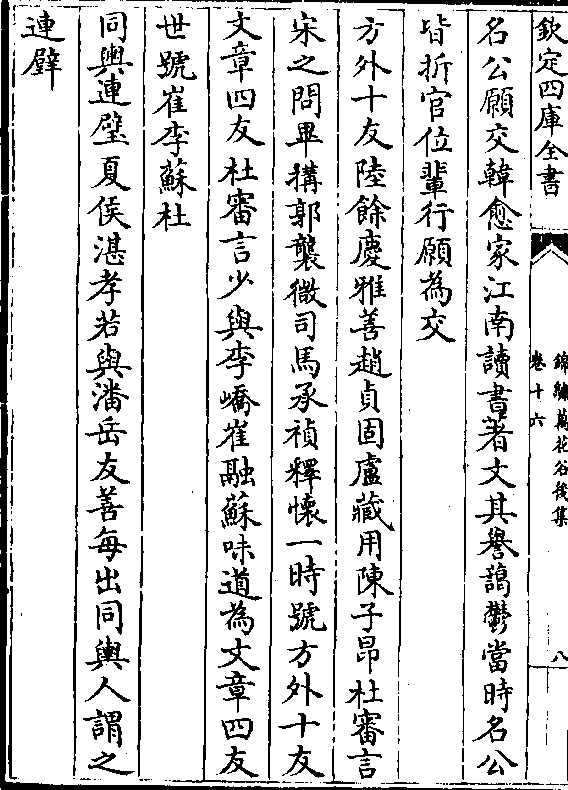 欽定四庫全書
錦繡萬花谷後集
卷十六
八
名公願交韓愈家江南讀書著文其譽藹鬱當時名公
皆折官位輩行願為交
方外十友陸餘慶雅善趙貞固盧藏用陳子昂杜審言
宋之問畢搆郭襲微司馬承禎釋懷一時號方外十友
文章四友杜審言少與李嶠崔融蘇味道為文章四友
世號崔李蘇杜
同輿連璧夏侯湛孝若與潘岳友善每出同輿人謂之
連璧